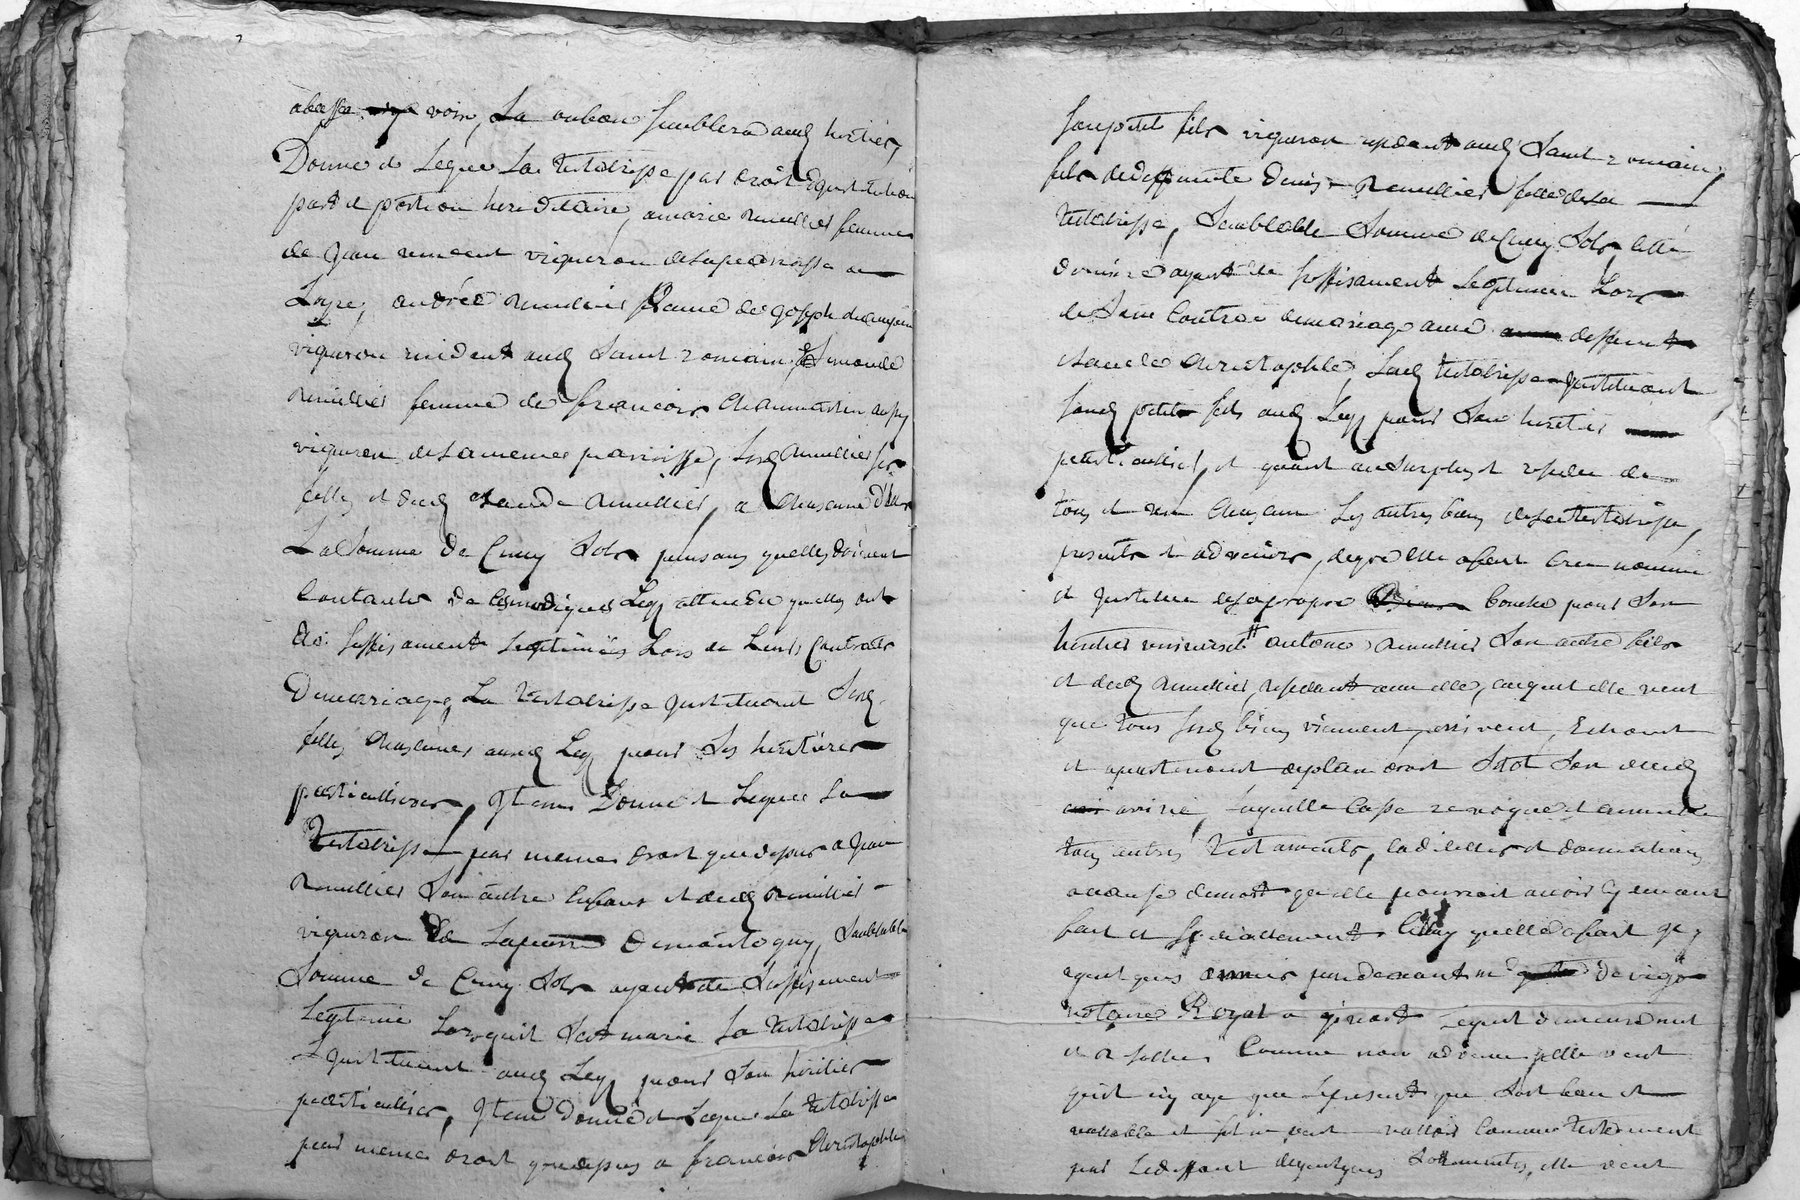 voir, La aubon semblera aud heritier,
Donne et Legue La testatrisse par droit d'Institution
part et portion hereditaire, a marie Rmillier femme
de Jean vincent vigneron de la paroisse de
Loyre, andrée Rmillier femme de Joseph
vigneron resident aud Saint romain, Simonde
Rmillier femme de francois Chaumartin aussy
vigneron de la meme paroisse, Ses
filles et dud Claude Rmillier, a chascune d'elles
La Somme de Cinq Sols pensant quelles doivent
Contantes de Ce modique Leg attendu quelles ont
été suffisament Legitimées Lors de Leurs Contrats
De mariage, La Testatrisse Instituant Sesd
filles chascunes aud Leg pour Ses heritieres
particulieres, Item Donne et Legue La
Testatrisse par meme droit que dessus a Jean
Rmillier Son autre Enfant et dud Rmillier
vigneron de La paroisse Semblable
Somme de Cinq Sols ayant été Suffisament
Legitimé Lorsquil S'est marié La Testatrisse
L'Instituant aud Leg pour Son héritier
particulier, Item Donne et Legue La testatrisse
par meme droit que dessus a francois Christophle
Son petit fils vigneron resident aud Saint romain,
fils de deffuncte Denise Rmillier fille de La
testatrisse, Semblable Somme de Cinq Sols, cette
derniere ayant été suffisament Legitimée Lors
de Son Contrat de mariage avec deffunt
Claude Christophle, Lad testatrisse Instituant
Sond petit fils aud Leg pour Son heritier
particulier, et quant au Surplus et residu de
tous et un Chascun Les autres biens de La testatrisse,
presents et advenirs, de gré elle a fait Créé nommé
et Institué de sa propre bouche pour Son
heritier universel antoine Rmillier Son autre fils
et dud Rmillier, resident avec elle, auquel elle veut
que tous sesd biens viennent, arrivent, Echoient
et apartiennent de plein droit Sitot Son deceds
arrivé, Laquelle Casse revoque et annulle
tous autres Testaments, Codicilles et donnations
a cause de mort qu'elle pourroit avoir Cy devant
fait et Specialement Celluy quelle a fait Il y
a quelques années par devant me de vigo
notaire Royal a givort Lequel demeurera nul
et de nul effet Comme non advenu, elle veut
quil n'y aye que Le present que Soit bon et
vallable et s'il ne peut valloir Comme testament
par Le deffaut de quelques Sollemnites, elle veut